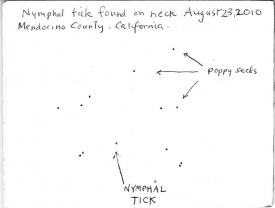 Nymphal tick found on neck August 23, 2010
Mendocino County. California.
poppy seeds
NYMPHAL
TICK